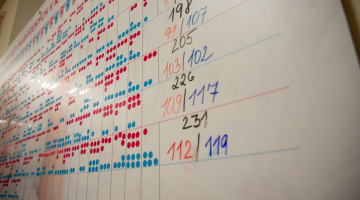 198
91/107
205
103/102
226
109/117
231
112/119